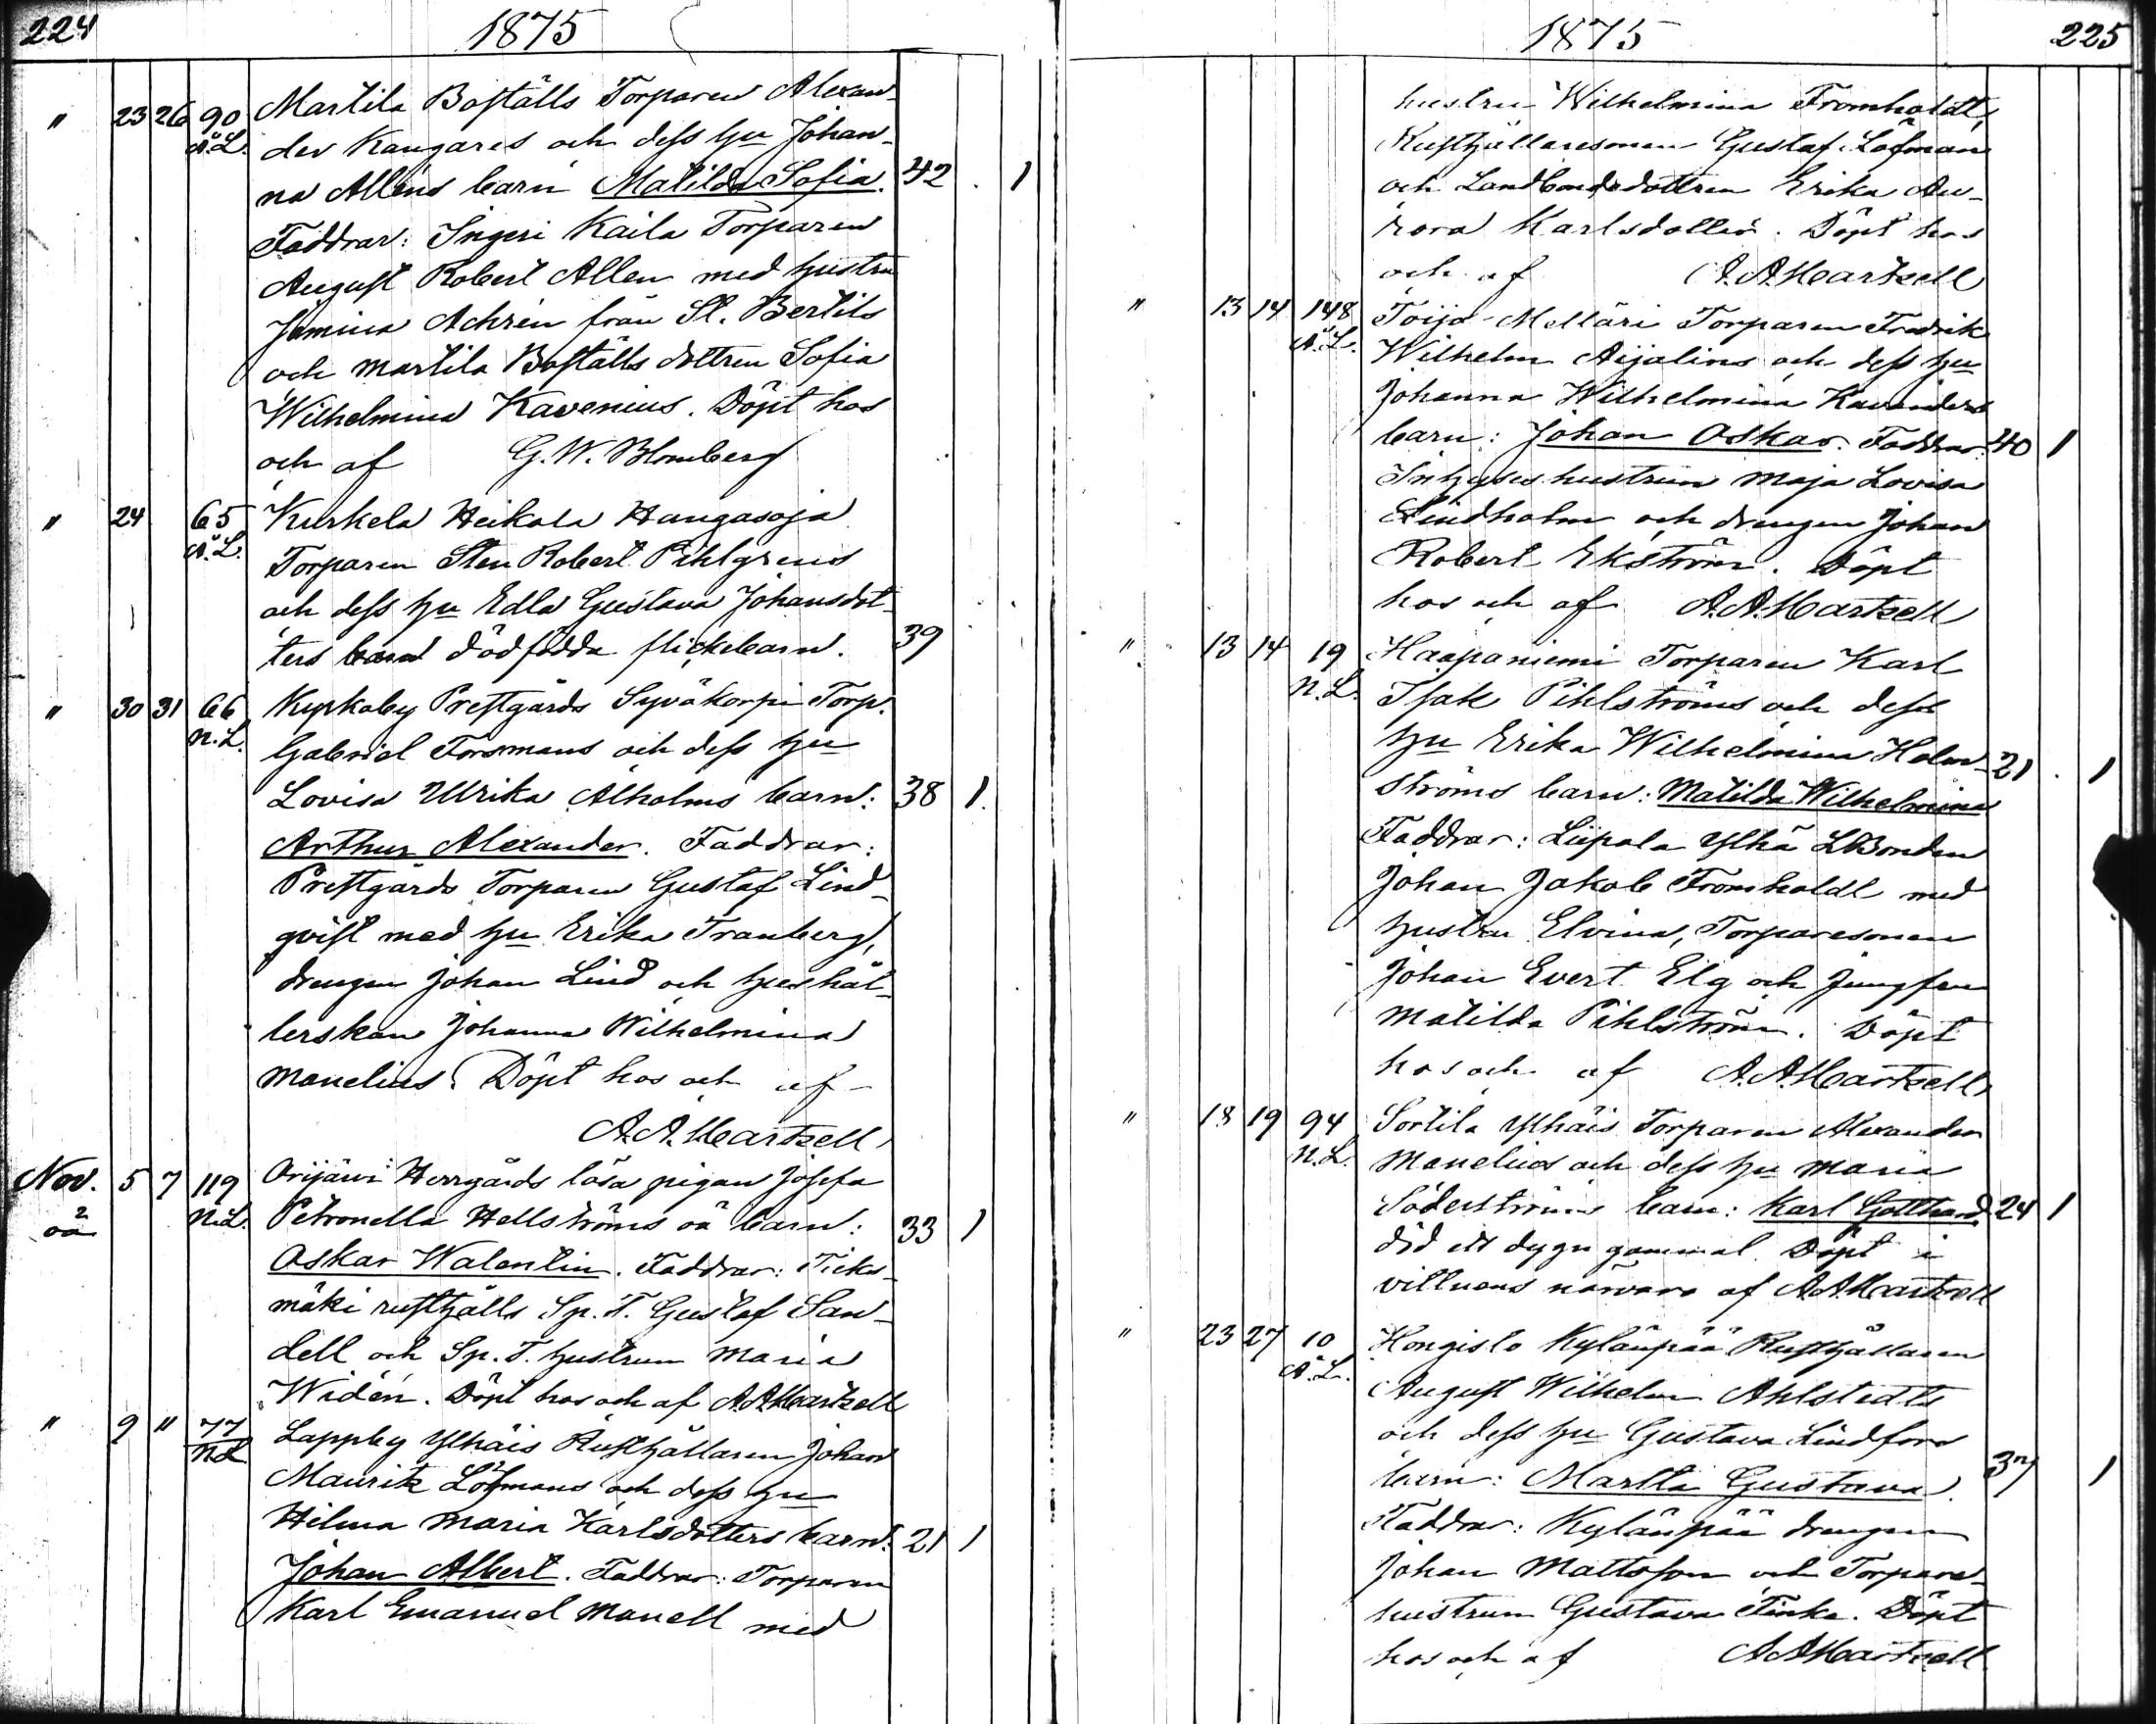 224 1875
" 23 26 90 Martila Boställs Torparen Alexan-
Ä.L. der Kangares och dess hu Johan-
na Alléns barn Matilda Sofia. 42 1
Faddrar: Ingeri Kaila Torparen
August Robert Allen med hustru
Jemina Achrén från St. Bertils
och Martila Boställs dottren Sofia
Wilhelmina Kavenius. Döpt hos
och af G. W. Blomberg
" 24 65 Kurkela Heikola Hangasoja
Ä.L. Torparen Sten Robert Pihlgrens
och dess hu Edla Gustava Johansdot-
ters barn dödfödda flickebarn. 39
" 30 31 66 Kyrkoby Prestgårds Syväkorpi Torp.
N.L. Gabriel Forsmans och dess hu
Lovisa Ulrika Alholms barn: 38 1.
Arthur Alexander. Faddrar:
Prestgårds Torparen Gustaf Lind-
qvist med hu Erika Tranberg,
drengen Johan Lind och hushål-
lerskan Johanna Wilhelmina
Manelius. Döpt hos och af
A. A. Hartzell
Nov. 5 7 119 Orijärvi Herrgårds lösa pigan Josefa
2 oä N.L. Petronella Hellströms oä barn: 33 1
Oskar Walentin. Faddrar:
mäki rusthålls Sp. T. Gustaf San-
dell och Sp. T. hustrun Maria
Widén. Döpt hos och af A. A. Hartzell
" 9 " 77 Lappby Ylhäis Rusthållaren Johan
N.L. Maurits Löfmans och dess hu
Hilma Maria Karlsdotters barn: 21 1
Johan Albert. Faddrar: Torparen
Karl Emanuel Manell med
1875 225
hustru Wilhelmina Fromholdt,
Rusthållaresonen Gustaf Löfman
och Landbondedottren Erika Au-
rora Karlsdotter. Döpt hos
och af A. A. Hartzell
" 13 14 148 Toija Melläri Torparen Fredrik
Ä.L. Wilhelm Aijalins och dess hu
Johanna Wilhelmina Kavanders
barn: Johan Oskar. Faddrar: 40 1
Inhyses hustrun Maja Lovisa
Lindholm och drengen Johan
Robert Ekström. Döpt
hos och af A. A. Hartzell
" 13 14 19 Haapaniemi Torparen Karl
N.L. Isak Pihlströms och dess
hu Erika Wilhelmina Holm- 21 1
ströms barn: Matilda Wilhelmina
Faddrar: Liipola Ylhä LBonden
Johan Jakob Fromholdt med
hustru Elvina, Torparesonen
Johan Evert Elg och Jungfru
Matilda Pihlström. Döpt
hos och af A. A. Hartzell
" 18 19 94 Sortila Ylhäis Torparen Alexander
N.L. Manelius och dess hu Maria
Söderströms barn: Karl Gotthard 24 1
död ett dygn gammal. Döpt i
vittnens närvaro af A. A. Hartzell
" 23 27 10 Hongisto Kylänpää Rusthållaren
Ä.L. August Wilhelm Ahlstedts
och dess hu Gustava Lindfors
barn: Martta Gustava. 37 1
Faddrar: Kylänpää drengen
Johan Mattsson och Torpare-
hustrun Gustava Finke. Döpt
hos och af A. A. Hartzell